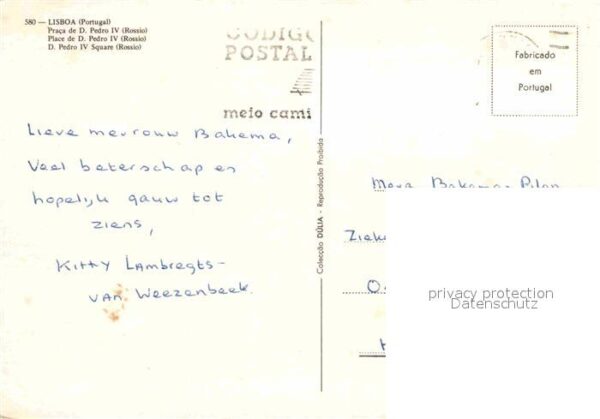 580 — LISBOA (Portugal)
Praça de D. Pedro IV (Rossio)
Place de D. Pedro IV (Rossio)
D. Pedro IV Square (Rossio)
CODIGO
POSTAL
meio cami
Fabricado
em
Portugal
Lieve mevrouw Bakema,
Veel beterschap en
hopelijk gauw tot
ziens,
Kitty Lambregts-
van Weezenbeek.
Colecção DÚLIA - Reprodução Proibida
Mevr. Bakema-Pilon
Zieke
privacy protection
Datenschutz